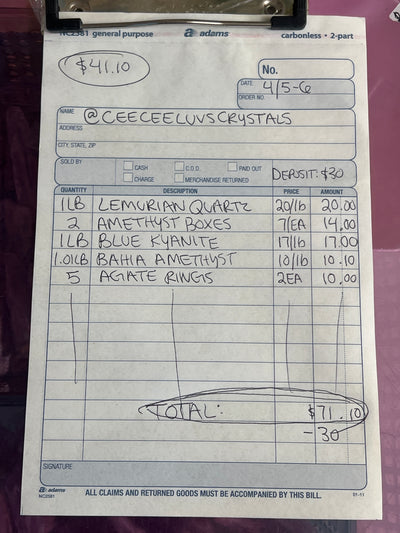 NC2381 general purpose adams carbonless • 2-part
$41.10
No.
DATE 4/5-6
ORDER NO.
NAME @CEECEELUVSCRYSTALS
ADDRESS
CITY, STATE, ZIP
SOLD BY CASH C.O.D. PAID OUT DEPOSIT: $30
CHARGE MERCHANDISE RETURNED
QUANTITY DESCRIPTION PRICE AMOUNT
1LB LEMURIAN QUARTZ 20/lb 20.00
2 AMETHYST BOXES 7/EA 14.00
1LB BLUE KYANITE 17/lb 17.00
1.01LB BAHIA AMETHYST 10/lb 10.10
5 AGATE RINGS 2EA 10.00
TOTAL: $71.10
-30
SIGNATURE
adams
NC2381 ALL CLAIMS AND RETURNED GOODS MUST BE ACCOMPANIED BY THIS BILL. 01-11